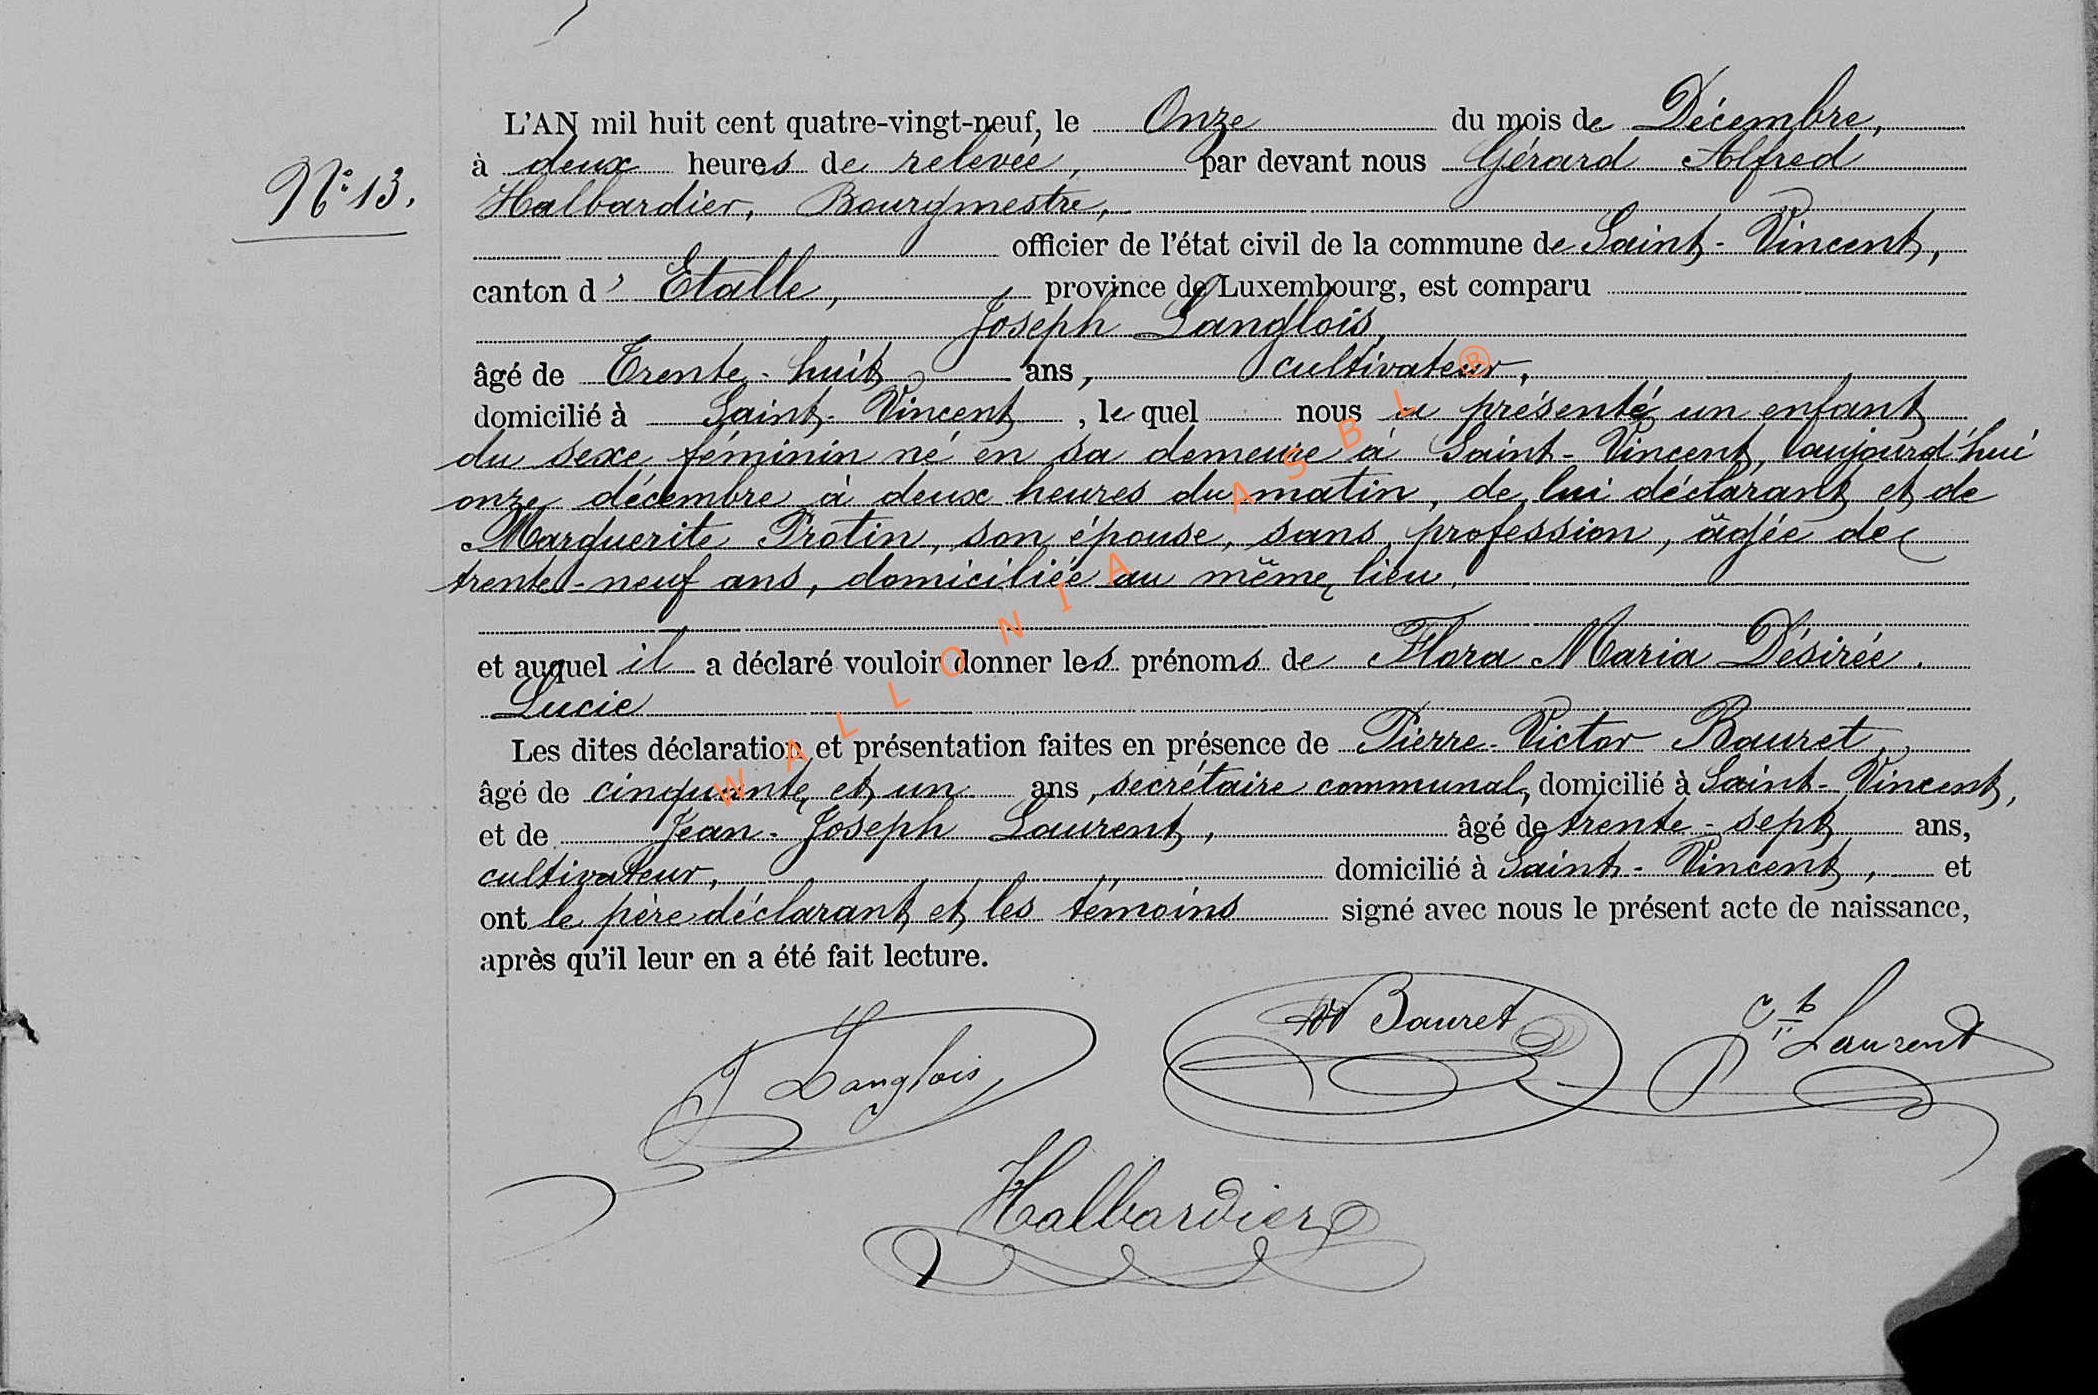 L'AN mil huit cent quatre-vingt-neuf, le Onze du mois de Décembre,
N° 13.
à deux heures de relevée, par devant nous Gérard Alfred
Halbardier, Bourgmestre,
officier de l'état civil de la commune de Saint-Vincent,
canton d'Etalle, province de Luxembourg, est comparu
Joseph Langlois,
âgé de Trente-huit ans, cultivateur,
domicilié à Saint-Vincent, lequel nous a présenté un enfant
du sexe féminin né en sa demeure à Saint-Vincent, aujourd'hui
onze décembre à deux heures du matin, de lui déclarant et de
Marguerite Protin, son épouse, sans profession, âgée de
trente-neuf ans, domiciliée au même lieu.
et auquel il a déclaré vouloir donner les prénoms de Flora Maria Désirée.
Lucie
Les dites déclaration et présentation faites en présence de Pierre-Victor Bauret,
âgé de cinquante et un ans, secrétaire communal, domicilié à Saint-Vincent,
et de Jean-Joseph Laurent, âgé de trente-sept ans,
cultivateur, domicilié à Saint-Vincent, et
ont le père déclarant et les témoins signé avec nous le présent acte de naissance,
après qu'il leur en a été fait lecture.
J Langlois
Bauret
Laurent
Halbardier
WALLONIA ASBL ®